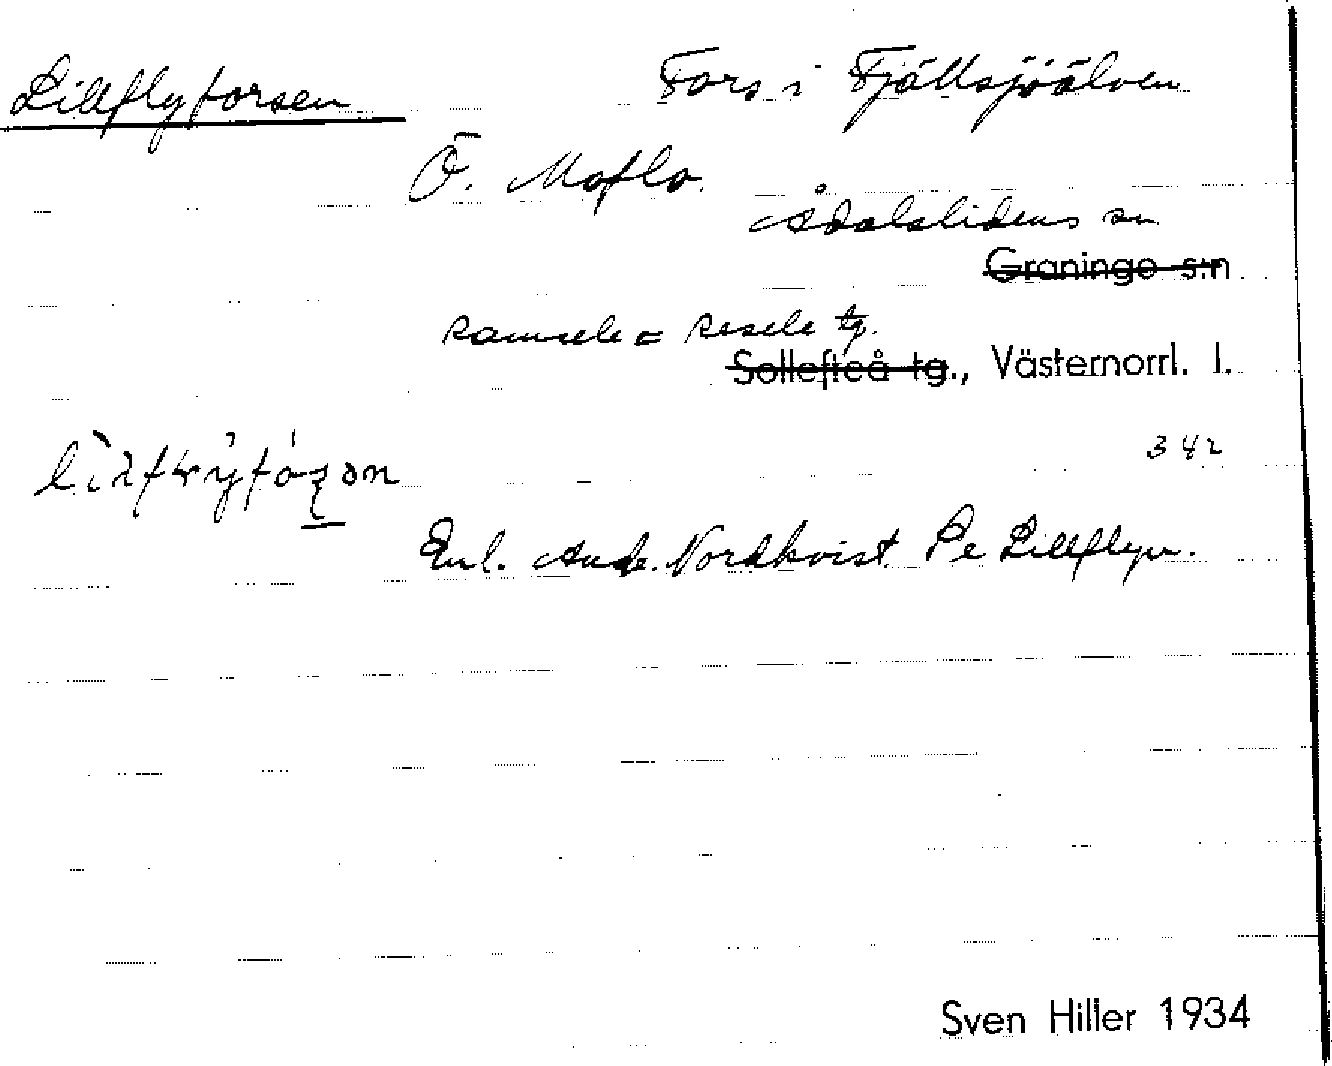 Lillflyforsen Fors i Fjällsjöälven
Ö. Moflo.
Ådalslidens sn
Graninge s:n
Ramsele = Resele tg.
Sollefteå tg., Västernorrl. l.
342
Enl. Nordkvist Lillflyn.
Sven Hiller 1934